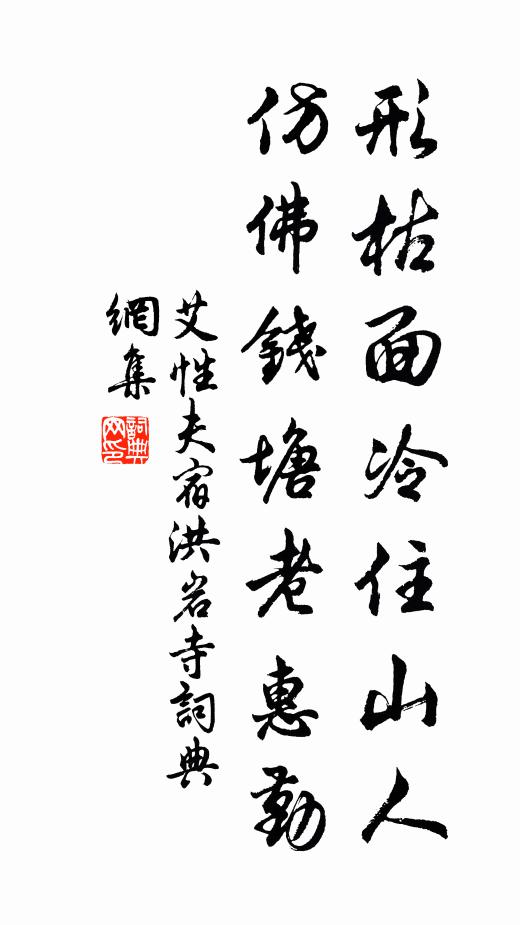 形枯面冷住山人
仿佛錢塘老惠勤
艾性夫宿洪岩寺詞典
網集
詞典
网印